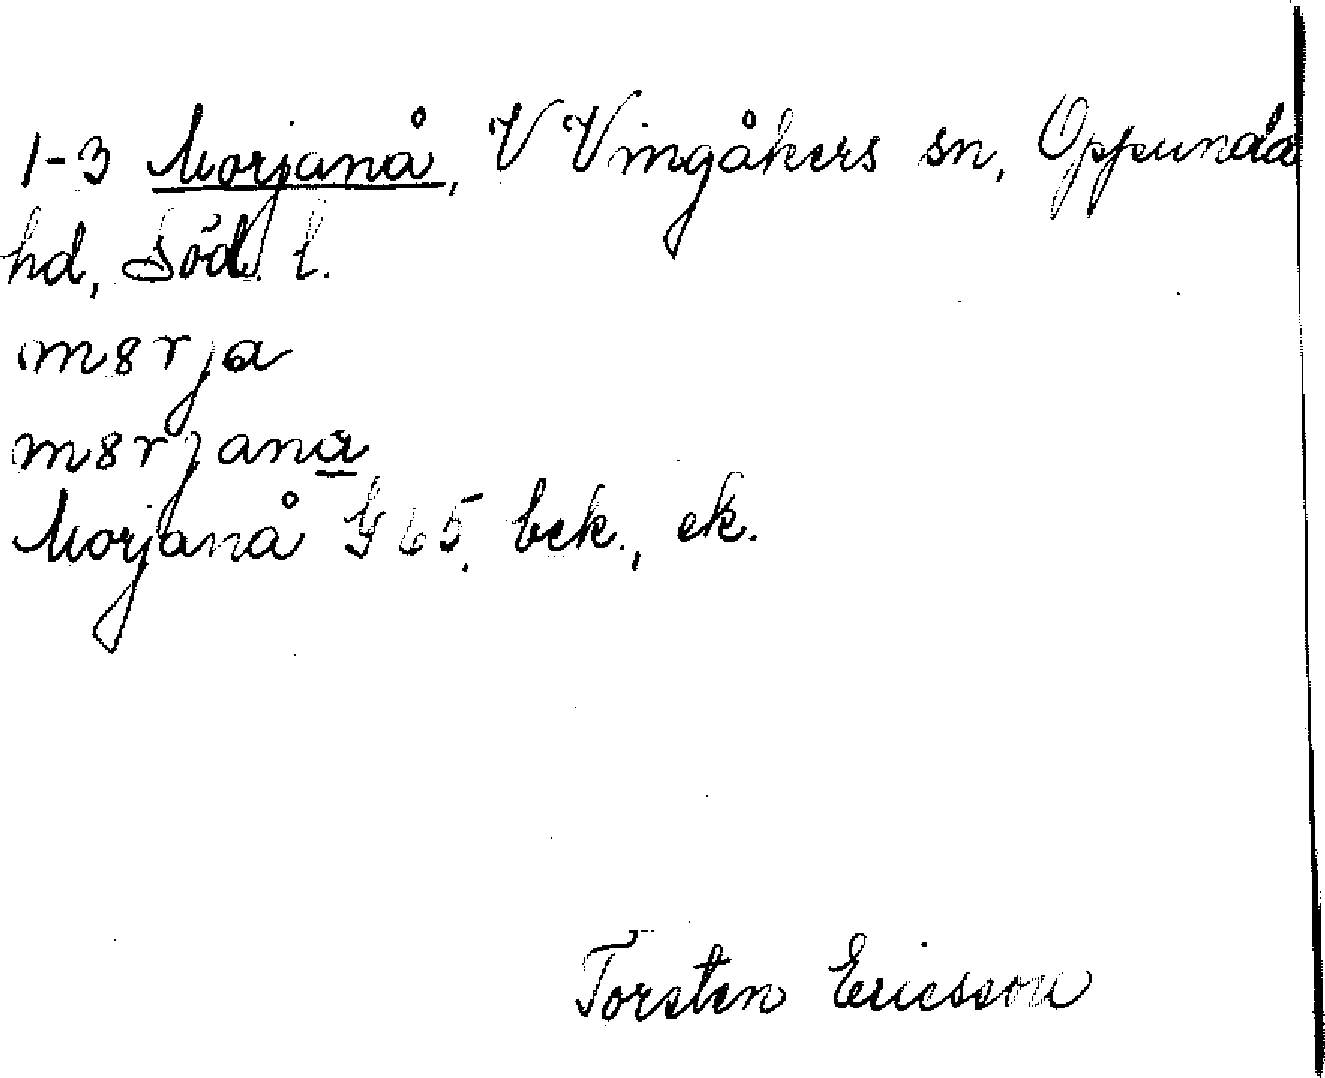 1-3 Morjanå, V Vingåkers sn, Oppunda
hd, Söd. l.
m8rja
m8rjana
Morjanå G 65. bek., ek.
Torsten Ericsson